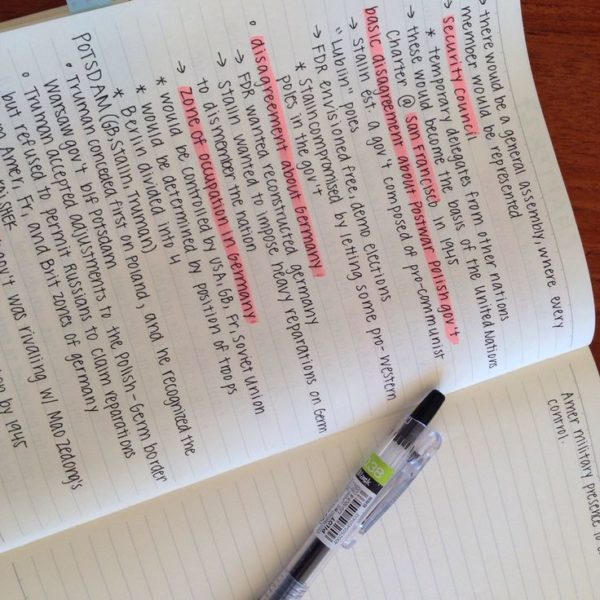 → there would be a general assembly, where every
member would be represented
→ security council
* temporary delegates from other nations
→ these would become the basis of the United Nations
Charter @ San Francisco in 1945
basic disagreement about Postwar Polish gov't
→ Stalin est. a gov't composed of pro-communist
"Lublin" poles
→ FDR envisioned free, demo elections
* Stalin compromised by letting some pro-western
poles in the gov't
• disagreement about Germany
→ FDR wanted reconstructed germany
→ Stalin wanted to impose heavy reparations on Germ
to dismember the nation
→ zone of occupation in Germany
* would be controlled by USA, GB, Fr, Soviet Union
* would be determined by position of troops
* Berlin divided into 4
POTSDAM (GB, Stalin, Truman)
• Truman conceded first on Poland, and he recognized the
Warsaw gov't b/f Potsdam
• Truman accepted adjustments to the Polish-Germ border
but refused to permit Russians to claim reparations
Amer, Fr, and Brit zones of germany
SHEK
gov't was rivaling w/ Mao Zedong's
by 1945
Amer military presence to
control.
038
PILOT